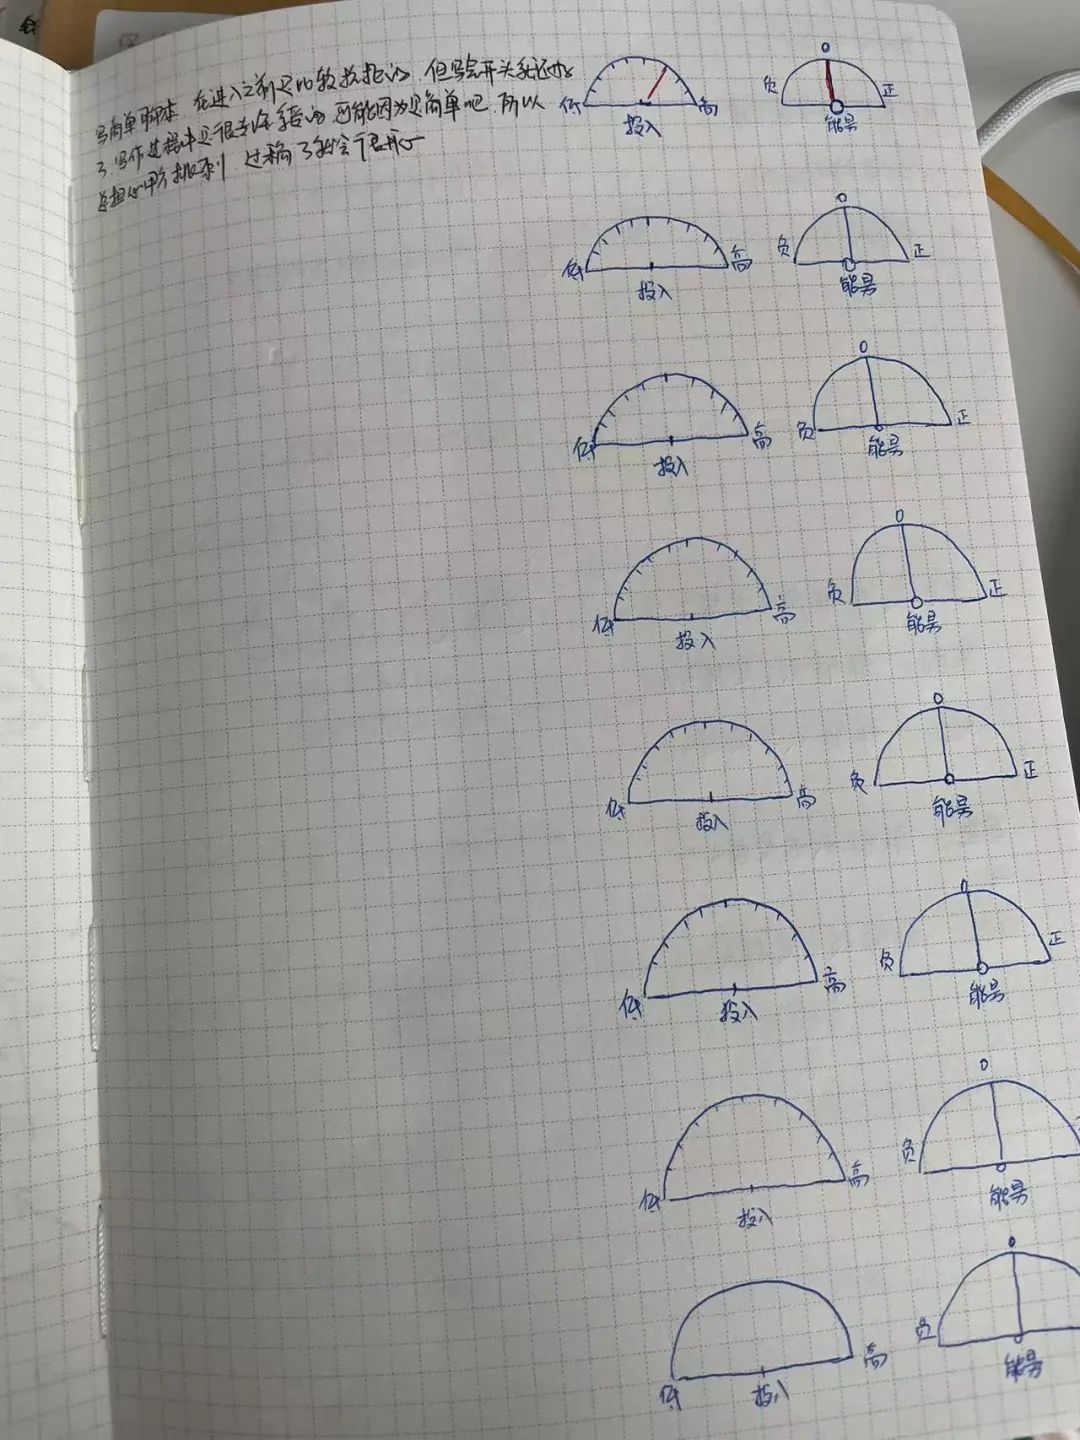 写简单脚本，在进入之前是比较抗拒的，但写完开头就还好
了，写作过程中是很专注 的，可能因为是简单吧，所以
总担心甲方 过稿了就会很开心
低 高 投入 0 负 正 能量
低 高 投入 0 负 正 能量
低 高 投入 0 负 正 能量
低 高 投入 0 负 正 能量
低 高 投入 0 负 正 能量
低 高 投入 0 负 正 能量
低 高 投入 0 负 能量
低 高 投入 0 负 能量